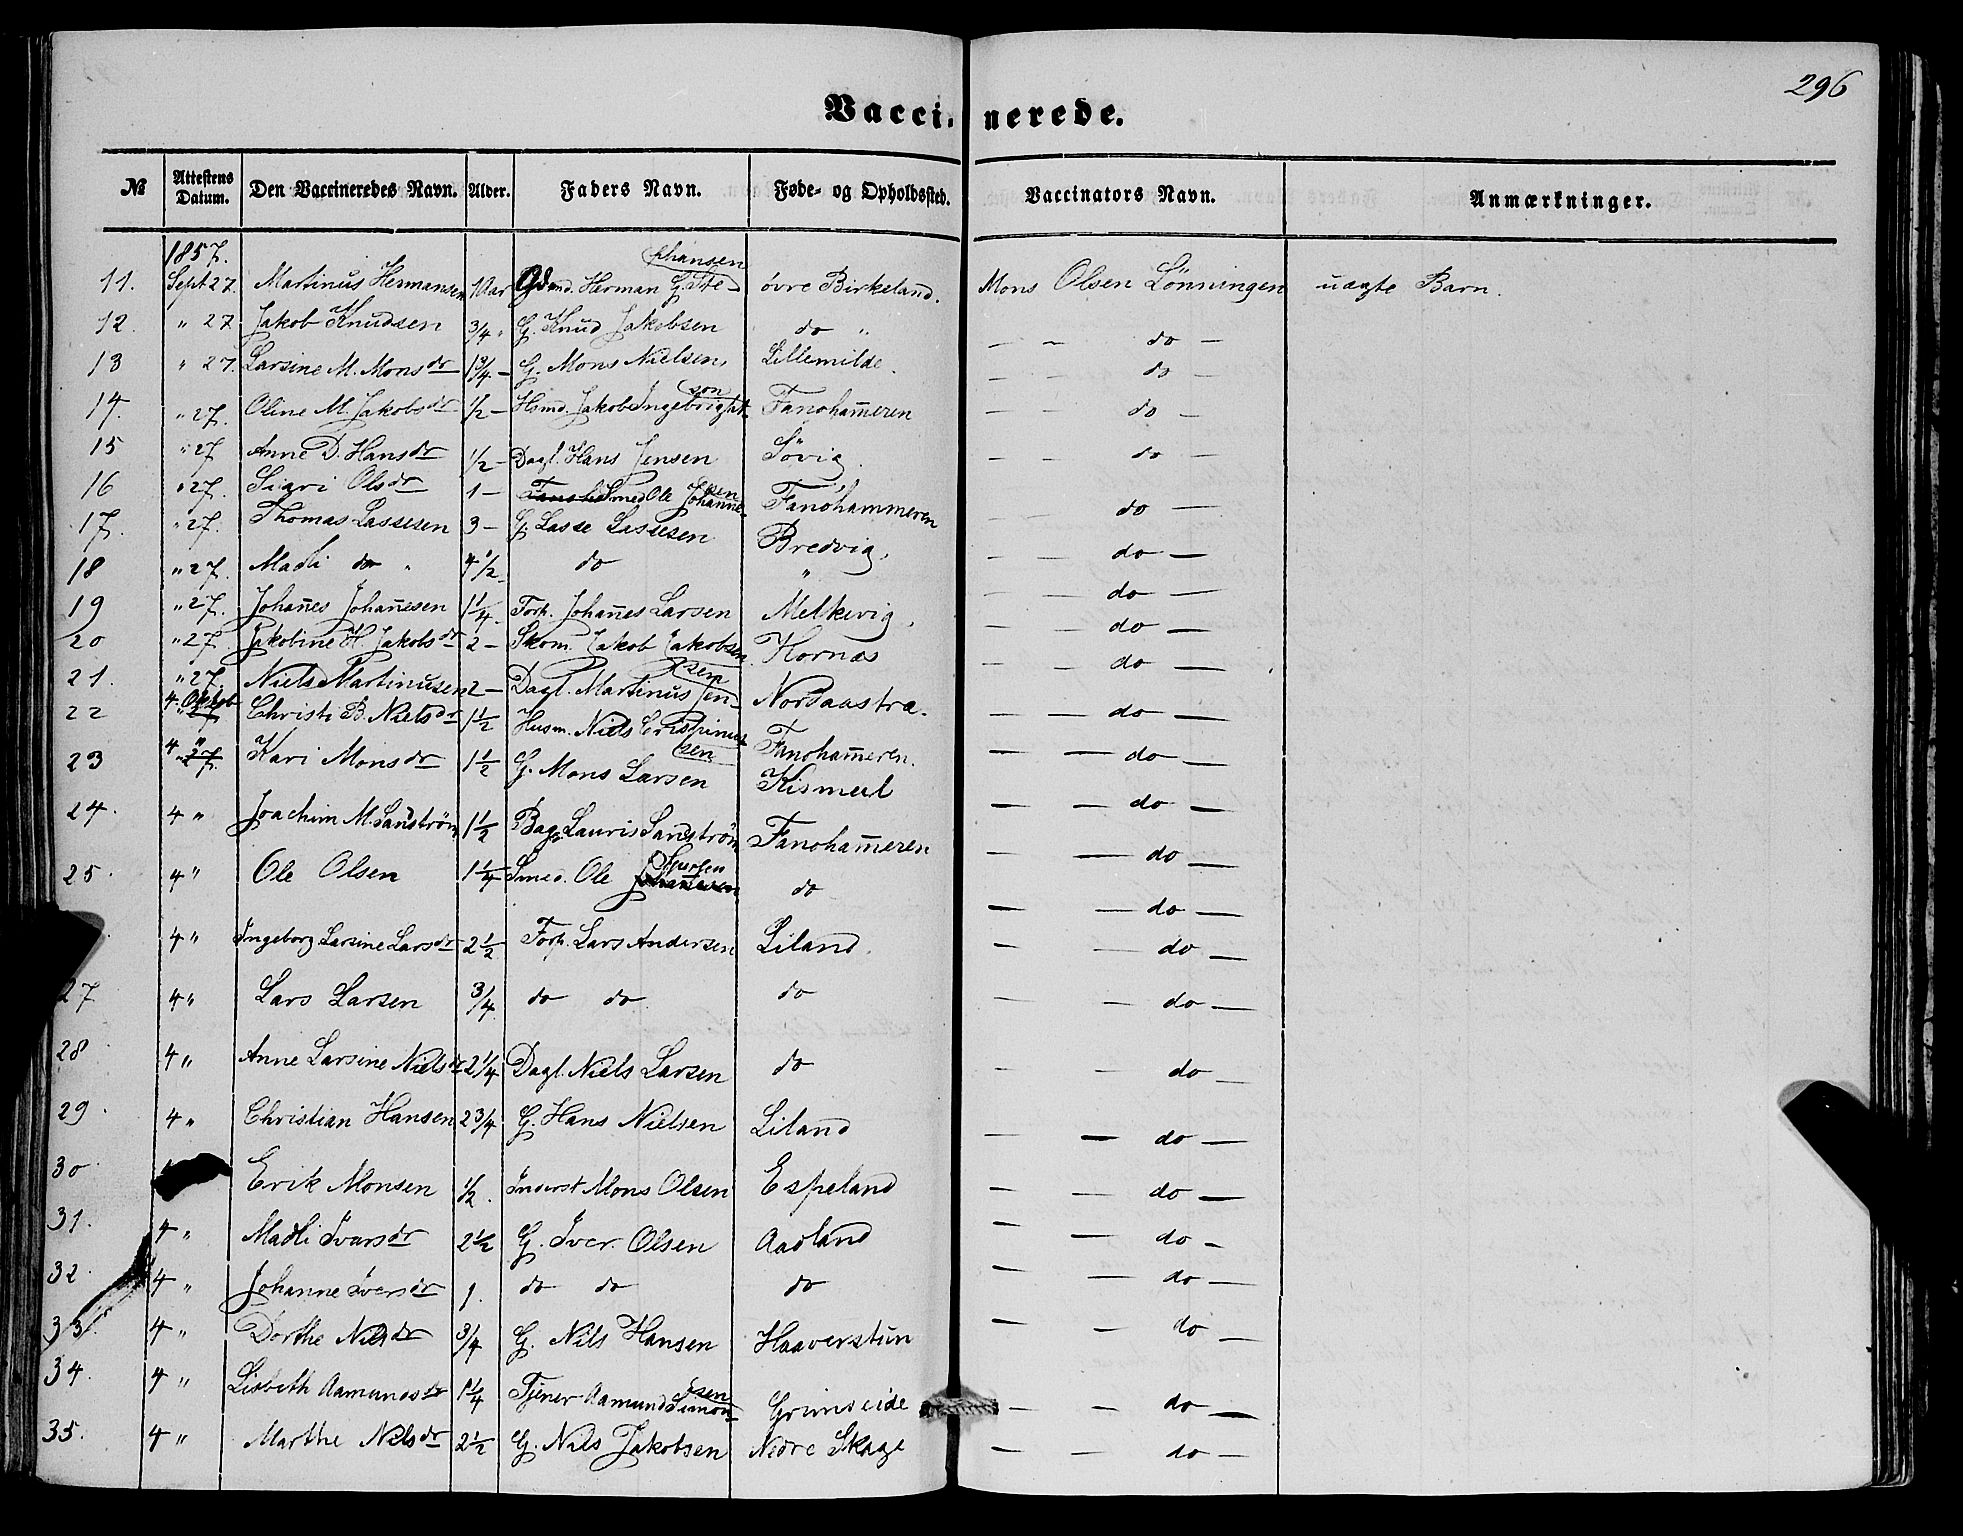 296
Vaccinerede.
№ Attestens Datum. Den Vaccineredes Navn. Alder. Faders Navn. Føde- og Opholdssted. Vaccinators Navn. Anmærkninger.
1857.
11. Sept 27. Martinus Hermansen 10 ar Gdmd. Herman Gste-phansen øvre Birkeland. Mons Olsen Lönningen uægte Barn.
12. " 27 Jakob Knudsen 3/4 " G. Knud Jakobsen do " — — do —
13 " 27. Larsine M. Monsdr 1 3/4 — G. Mons Nielsen, Lillemilde. — — do —
14. " 27. Oline M. Jakobsdr 1/2 — Hsmd. Jakob Ingebrigt-son Fanoham̄eren — — do —
15 " 27 Anne D. Hansdr 1/2 — Dagl. Hans Jensen Søvig. — — do —
16 " 27. Sigri Olsdr 1 — Smed Ole Johanne-sen Fanohammeren — — do —
17. " 27. Thomas Lassesen 3 — G. Lasse Lassesen Bredvig, — — do —
18 " 27. Madli do " 4 1/2 do " — — do —
19 " 27. Johan̄es Johan̄esen 1 1/4. Forh. Johan̄es Larsen Melkevig, — — do —
20 " 27. Jakobine H. Jakobsdr 2 — Skom. Jakob Jakobsen Hornæs — — do —
21. " 27. Niels Martinusen 2 — Dagl. Martinus Jen-sen Nordaastræ. — — do —
22 4. Oktob 27 Christi B. Nielsdr 1 1/2 Husm. Niels Crispinus-sen Fanoham̄eren. — — do —
23 4 " 27. Kari Monsdr 1 1/2 G. Mons Larsen Kismul — — do —
24. 4 " Joachim M. Sandström 1 1/2 Bag. Lauris Sandström Fanoham̄eren — — do —
25. 4 " Ole Olsen 1 1/4 Smed. Ole do — — do —
4 " Ingeborg Larsine Larsdr 2 1/2 Forp. Lars Andersen Liland. — — do —
27 4 " Lars Larsen 3/4 do do do — — do —
28 4 " Anne Larsine Nielsdr 2 1/4 Dagl. Niels Larsen do — — do —
29. 4 " Christian Hansen 2 3/4 G. Hans Nielsen Liland — — do —
30. Erik Monsen 1/2. Inderst Mons Olsen Espeland — — do —
31. 4 " Madli Ivarsdr 2 1/2 G. Iver. Olsen Aadland — — do —
32. 4 " Johanne Iversdr 1. do do do — — do —
33. 4 " Dorthe Nilsdr 3/4 G. Nils Hansen Haaverstun — — do —
34. 4 " Lisbeth Aamundsdr 1 1/4 Tjener Aamund Simon-sen Grimseide — — do —
35. 4 " Marthe Nilsdr 2 1/2 G. Nils Jakobsen Nedre Skage — — do —